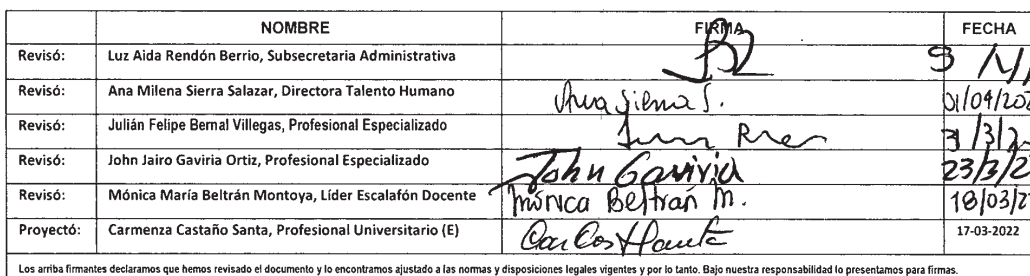 NOMBRE FIRMA FECHA
Revisó: Luz Aida Rendón Berrio, Subsecretaria Administrativa
Revisó: Ana Milena Sierra Salazar, Directora Talento Humano Ana Sierra S. 01/04/202
Revisó: Julián Felipe Bernal Villegas, Profesional Especializado 31/3/2
Revisó: John Jairo Gaviria Ortiz, Profesional Especializado John Gaviria 23/3/2
Revisó: Mónica María Beltrán Montoya, Líder Escalafón Docente Mónica Beltrán M. 18/03/2
Proyectó: Carmenza Castaño Santa, Profesional Universitario (E) 17-03-2022
Los arriba firmantes declaramos que hemos revisado el documento y lo encontramos ajustado a las normas y disposiciones legales vigentes y por lo tanto. Bajo nuestra responsabilidad lo presentamos para firmas.